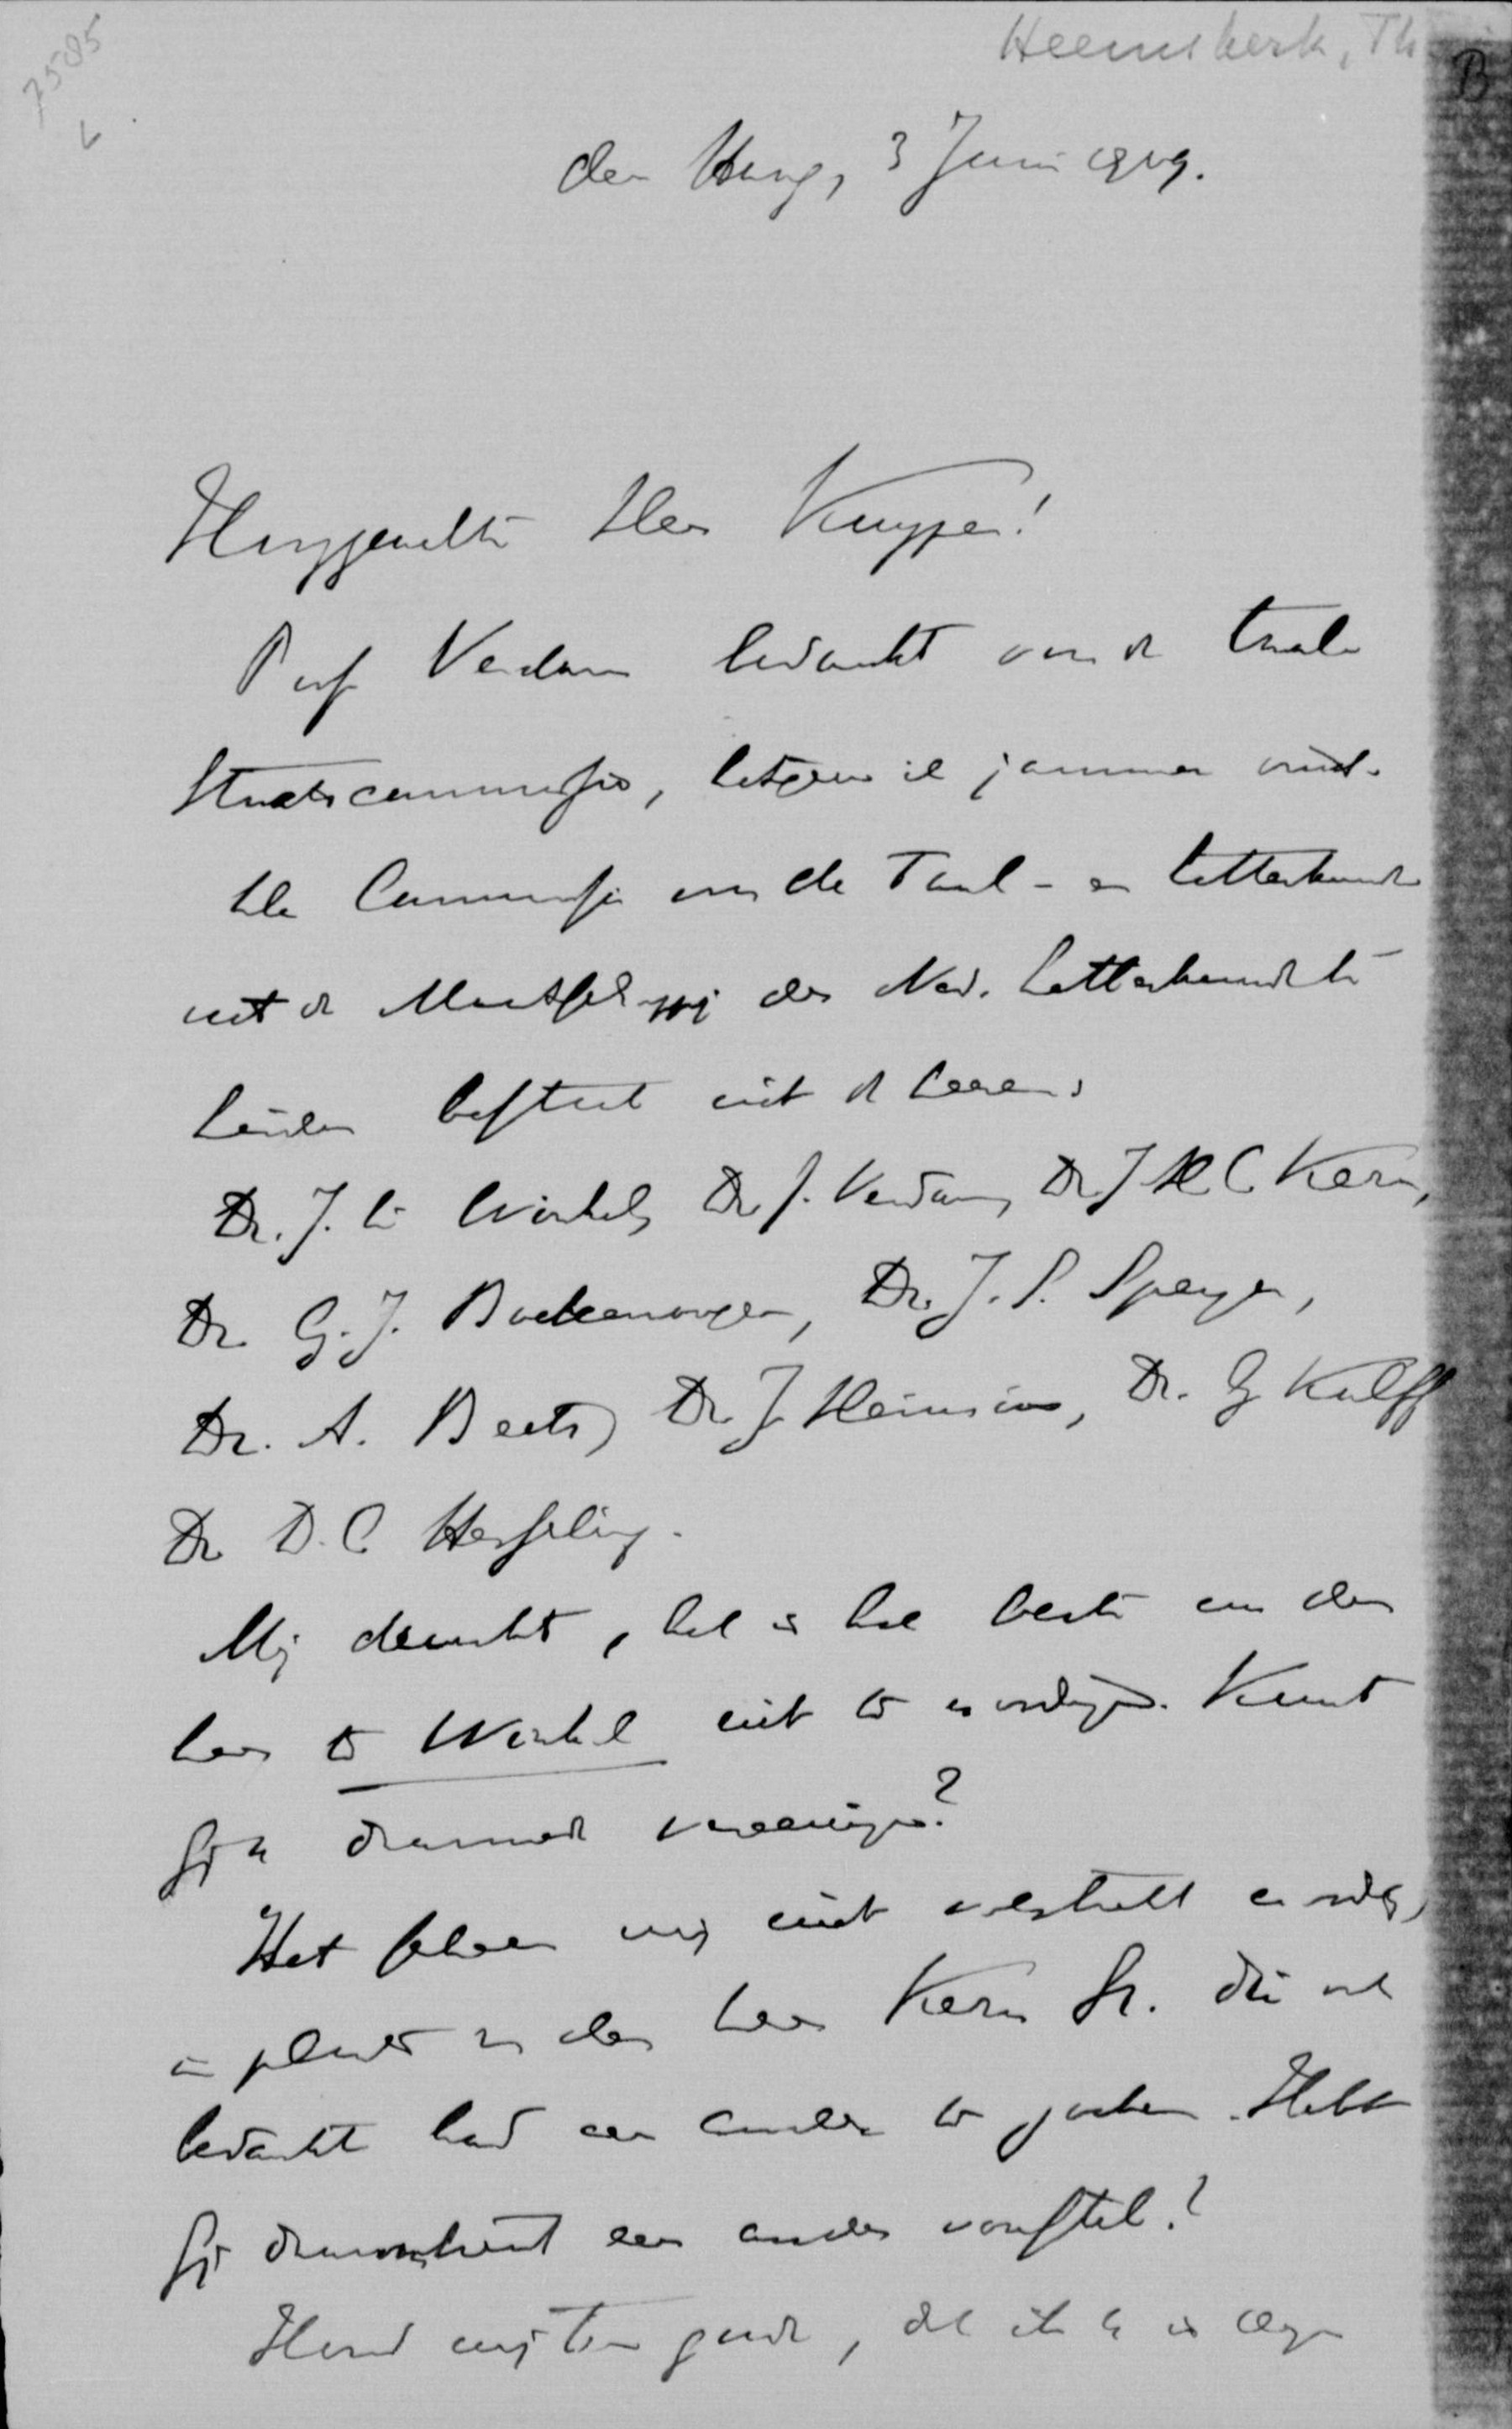 7585
Heemskerk, Th
B
den Haag, 3 Juni 1909.
Hooggeachte Heer Kuyper!
Prof Verdam bedankt voor de taal
Staatscommissie, hetgeen ik jammer vind.
De Commissie voor de Taal- en letterkunde
uit de Maatschappij der Ned. Letterkunde te
Leiden bestaat uit de heeren:
Dr. J. te Winkel, Dr. J. Verdam, Dr J H C Kern,
Dr. G. J. Boekenoogen, Dr. J. S. Speyer,
Dr. A. Beets, Dr. J. Heinsius, Dr. G Kalff
Dr D. C Hesseling.
Mij dunkt, het is het beste om den
heer te Winkel uit te noodigen. Kunt
gij u daarmede vereenigen?
Het scheen mij niet volstrekt noodig,
in plaats van den heer Kern Sr. die ook
bedankt had een ander te zoeken. Hebt
gij daaromtrent een ander voorstel?
Houd mij ten goede, dat ik u in